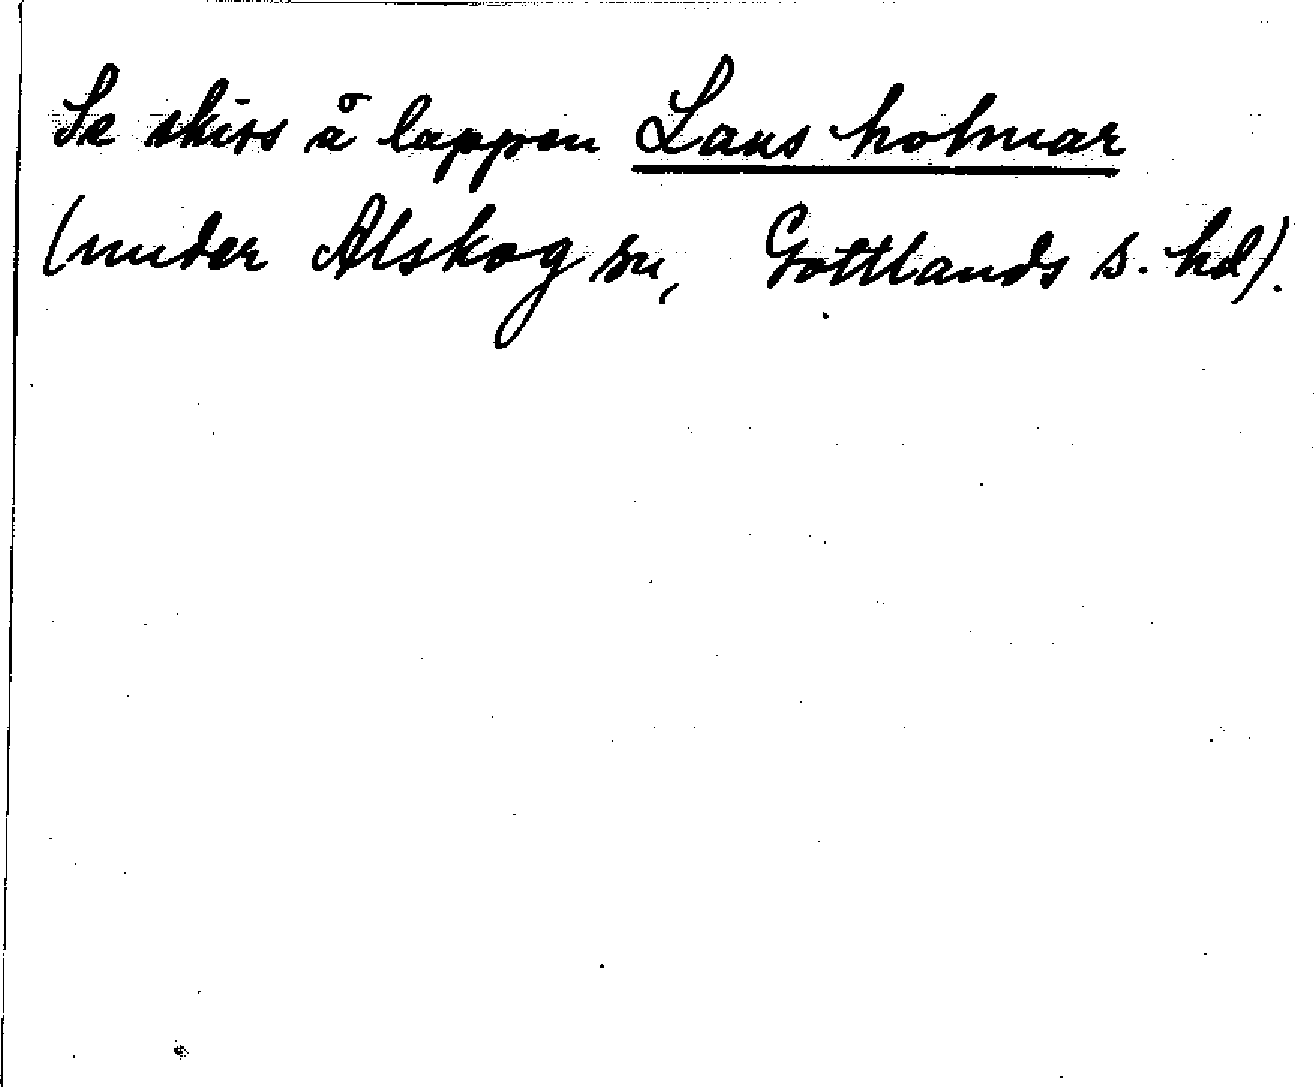 Se skiss å lappen Laus holmar
(under Alskog sn, Gottlands s. hd).